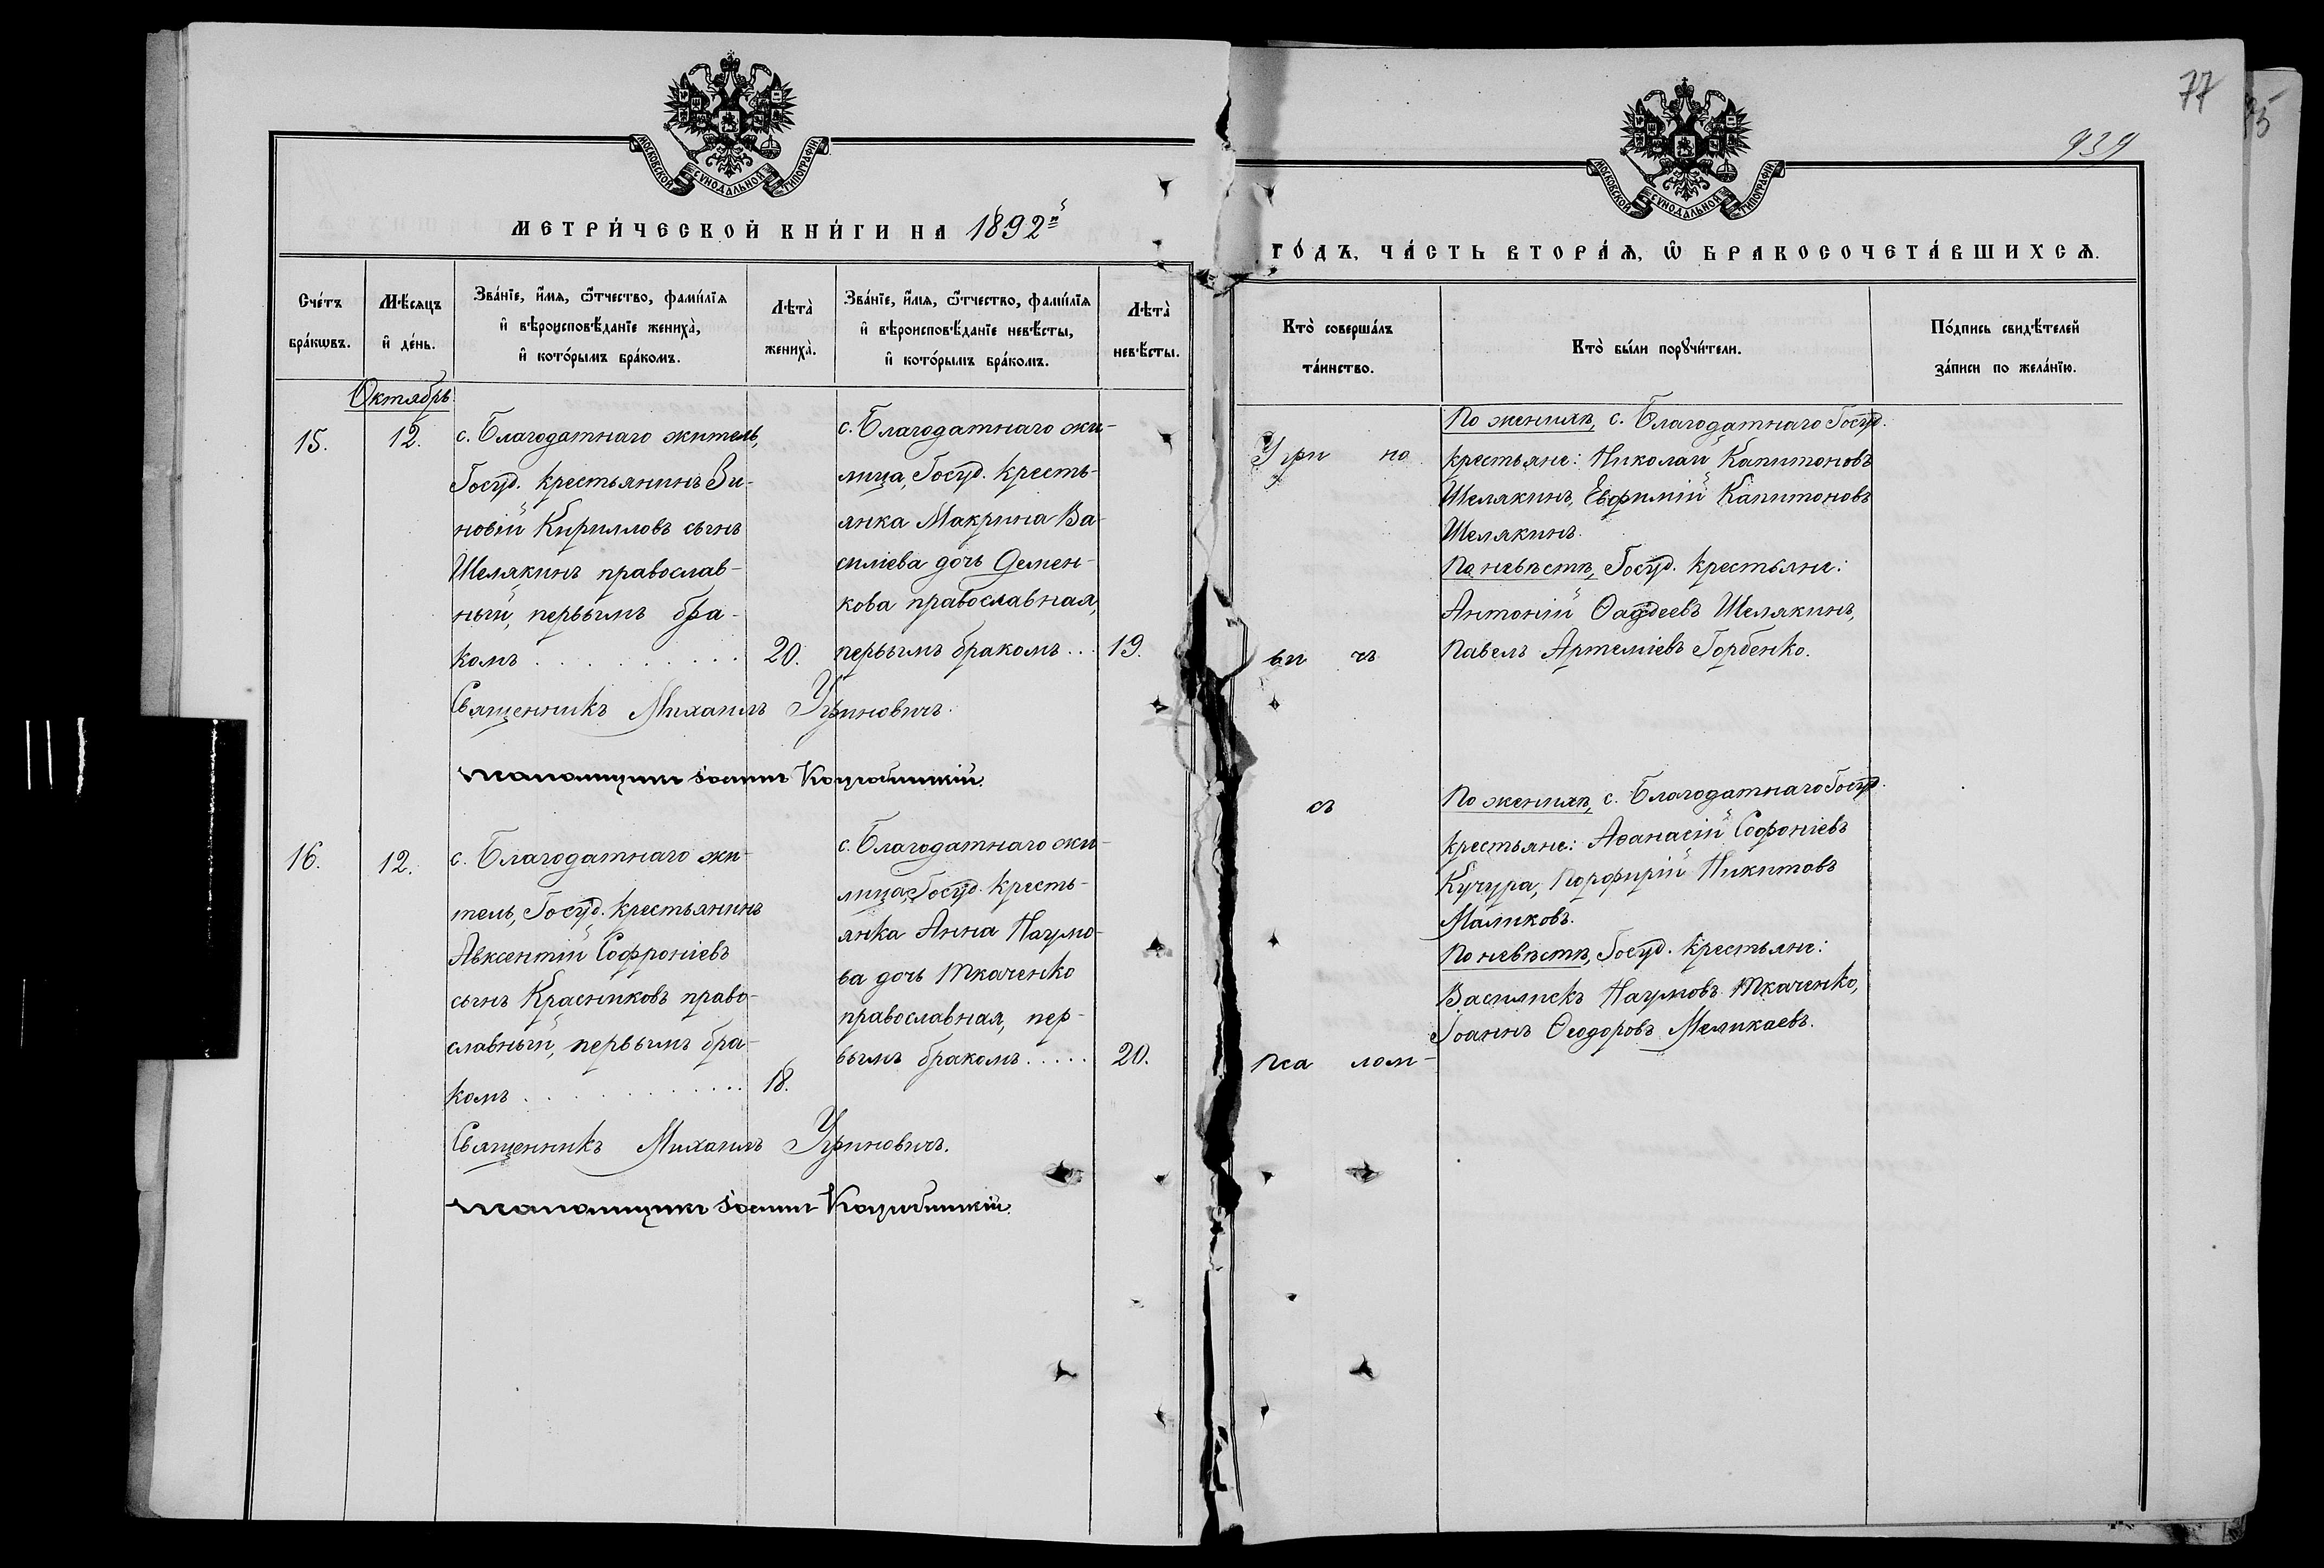 77
939
МОСКОВСКОЙ СѴНОДАЛЬНОЙ ТИПОГРАФІИ
МОСКОВСКОЙ СѴНОДАЛЬНОЙ ТИПОГРАФІИ
МЕТРИ́ЧЕСКОЙ КНИ́ГИ НА 1892й
ГО́ДЪ, ЧА́СТЬ ВТОРА́Ѧ, Ѡ҆ БРАКОСОЧЕТА́ВШИХСѦ.
Сче́тъ
бра́кѡвъ.
Мѣ́сяцъ
и҆ де́нь.
Зва́нїе, и҆́мя, ѻ҆́тчество, фами́лїя
и҆ вѣроисповѣ́данїе жениха̀,
и҆ кото́рымъ бра́комъ.
Лѣта̀
жениха̀.
Зва́нїе, и҆́мя, ѻ҆́тчество, фами́лїя
и҆ вѣроисповѣ́данїе невѣ́сты,
и҆ кото́рымъ бра́комъ.
Лѣта̀
невѣ́сты.
Кто̀ соверша́лъ
та́инство.
Кто̀ бы́ли порꙋчи́тели.
По́дпись свидѣ́телей
за́писи по жела́нїю.
Октябрь
15.
12.
с. Благодатнаго житель,
Госуд. крестьянинъ Зи-
новій Кирилловъ сынъ
Шелякинъ православ-
ный, первымъ бра-
комъ . . . . . . . . . .
20.
с. Благодатнаго жи-
лица, Госуд. кресть-
янка Макрина Ва-
силіева дочь Демен-
кова православная,
первымъ бракомъ...
19.
Угри но
ви чъ
По женихѣ, с. Благодатнаго Госуд.
крестьяне: Николай Капитоновъ
Шелякинъ, Евфимій Капитоновъ
Шелякинъ.
По невѣстѣ, Госуд. крестьяне:
Антоній Ѳаддеевъ Шелякинъ,
Павелъ Артеміевъ Горбенко.
Священникъ Михаилъ Угриновичъ.
16.
12.
с. Благодатнаго жи-
тель, Госуд. крестьянинъ
Авксентій Софроніевъ
сынъ Красниковъ право-
славный, первымъ бра-
комъ . . . . . . . . . .
18.
с. Благодатнаго жи-
лица, Госуд. кресть-
янка Анна Наумо-
ва дочь Ткаченко
православная, пер-
вымъ бракомъ.....
20.
съ
пса лом-
По женихѣ, с. Благодатнаго Госуд.
крестьяне: Аѳанасій Софроніевъ
Кучура, Порфирій Никитовъ
Маликовъ.
По невѣстѣ, Госуд. крестьяне:
Василискъ Наумовъ Ткаченко,
Іоаннъ Ѳеодоровъ Меликаевъ.
Священникъ Михаилъ Угриновичъ.